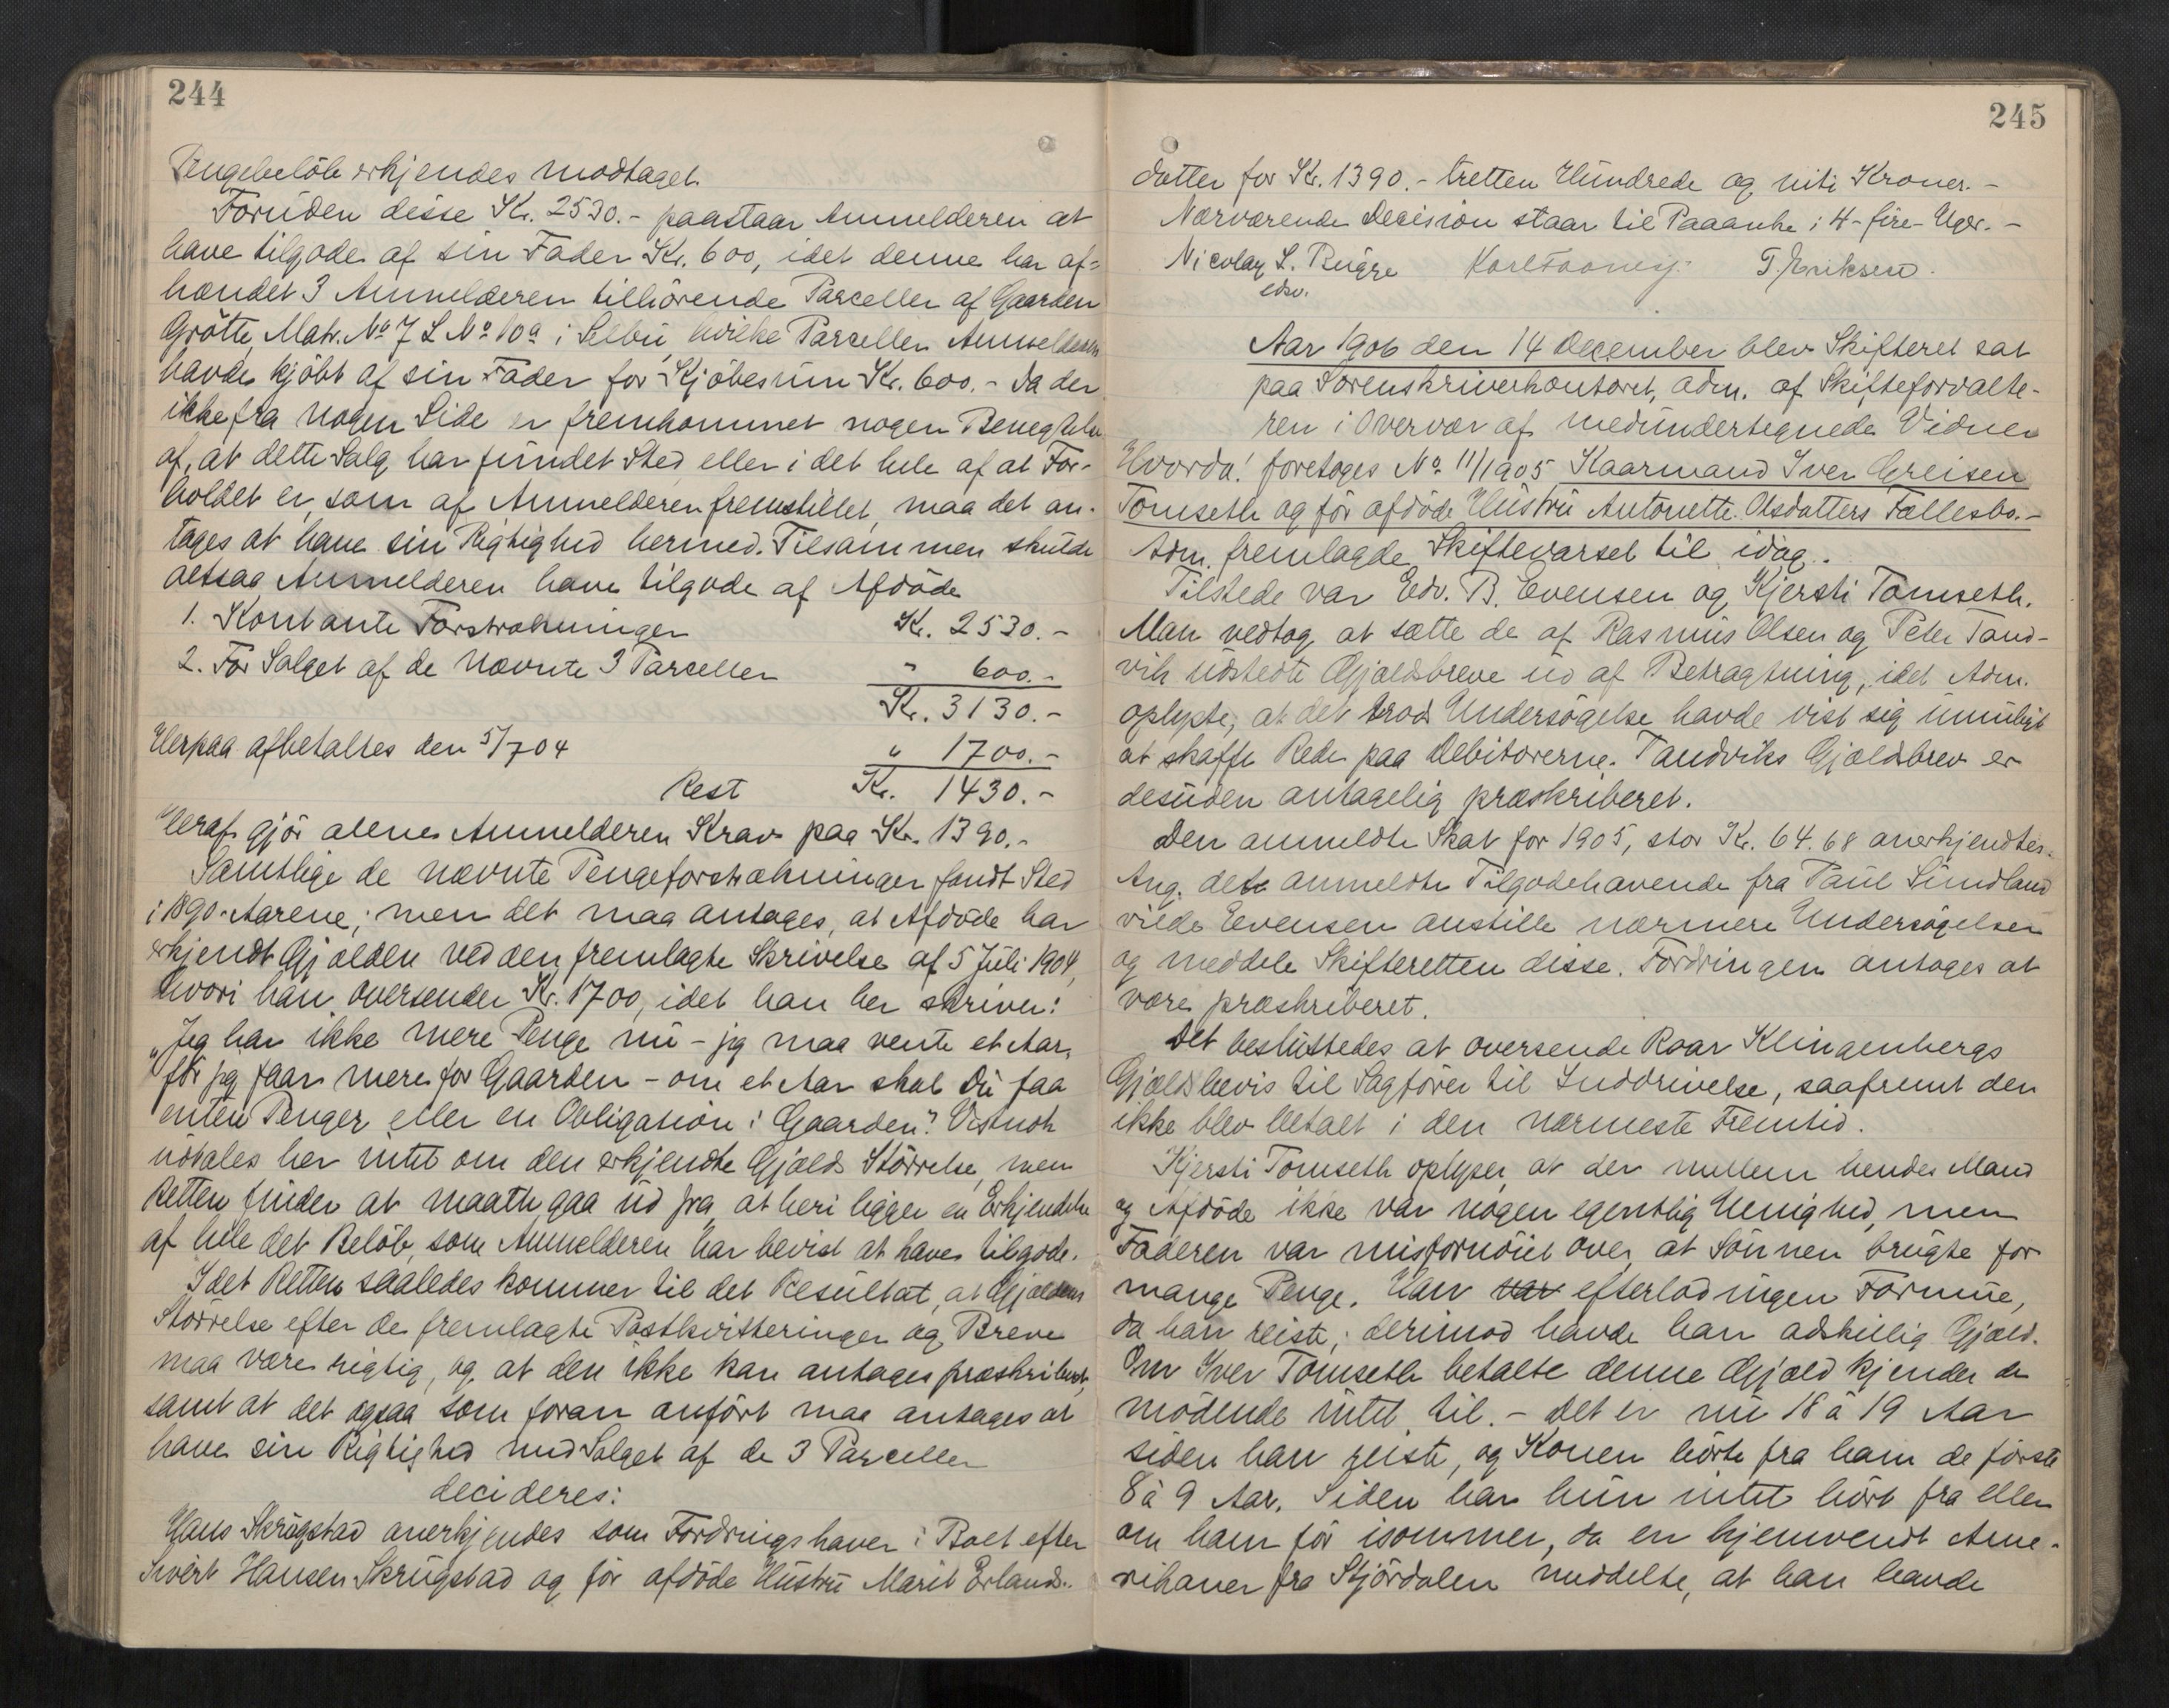 244
Pengebeløb erkjendes modtaget.
Foruden disse Kr. 2530.- paastaar Anmelderen at
have tilgode af sin Fader Kr. 600, idet denne har af=
hændet 3 Anmelderen tilhörende Parceller af Gaarden
Grötte, Matr. No 7 L No 10a i Selbu, hvilke Parceller Anmelderen
havde kjöbt af sin Fader for Kjöbesum Kr. 600.- Da der
ikke fra nogen Side er fremkommet nogen Benegtelse
af, at dette Salg har fundet Sted eller i det hele af at For-
holdet er, som af Anmelderen fremstillet, maa det an-
tages at have sin Rigtighed hermed. Tilsammen skulde
altsaa Anmelderen have tilgode af Afdöde
1. Kontante Forstrækninger Kr. 2530.-
2. For Salget af de nævnte 3 Parceller " 600.-
Kr. 3130.-
Herpaa afbetaltes den 5/7 04 " 1700.-
Rest Kr. 1430.-
Heraf gjör alene Anmelderen Krav paa Kr. 1390.-
Samtlige de nævnte Pengeforstrækninger fandt Sted
i 1890-Aarene; men det maa antages, at Afdöde har
erkjendt Gjælden ved den fremlagte Skrivelse af 5 Juli 1904,
hvori han oversender Kr. 1700, idet han her skriver:
"Jeg har ikke mere Penge nu - jeg maa vente et Aar,
för jeg faar mere for Gaarden - om et Aar skal Du faa
enten Penger eller en Obligation i Gaarden". Vistnok
udtales her intet om den erkjendte Gjælds Störrelse, men
Retten finder at maatte gaa ud fra, at heri ligger en Erkjendelse
af hele det Belöb, som Anmelderen har bevist at have tilgode.
Idet Retten saaledes kommer til det Resultat, at Gjældens
Störrelse efter de fremlagte Postkvitteringer og Breve
maa være rigtig, og at den ikke kan antages præskriberet,
samt at det ogsaa som foran anfört maa antages at
have sin Rigtighed med Salget af de 3 Parceller
decideres:
Hans Skrugstad anerkjendes som Fordringshaver i Boet efter
Sivert Hansen Skrugstad og för afdöde Hustru Marit Erlands-
245
datter for Kr. 1390.- tretten Hundrede og niti Kroner.-
Nærværende Decision staar til Paaanke i 4-fire-Uger.-
Nicolay L. Bugge T. Eriksen.
edsv.
Aar 1906 den 14 December blev Skifteret sat
paa Sorenskriverkontoret, adm. af Skifteforvalte-
ren i Overvær af medundertegnede Vidner
Hvorda! foretoges No. 11/1905 Kaarmand Iver Greisen
Tomseth og för afdöde Hustru Antonette Olsdatters Fællesbo.-
Adm. fremlagde Skiftevarsel til idag.
Tilstede var Edv. B. Evensen og Kjersti Tomseth.
Man vedtog at sætte de af Rasmus Olsen og Peter Tand-
vik udstedte Gjældsbreve ud af Betragtning, idet Adm.
oplyste, at det trods Undersögelse havde vist sig umuligt
at skaffe Rede paa Debitorerne. Tandviks Gjældsbrev er
desuden antagelig præskriberet.
Den anmeldte Skat for 1905, stor Kr. 64.68 anerkjendtes.
Ang. det anmeldte Tilgodehavende fra Paul Sundland
vilde Evensen anstille nærmere Undersögelser
og meddele Skifteretten disse. Fordringen antages at
være præskriberet.
Det besluttedes at oversende Roar Klingenbergs
Gjældsbevis til Sagförer til Inddrivelse, saafremt den
ikke blev betalt i den nærmeste Fremtid.
Kjersti Tomseth oplyser, at der mellem hendes Mand
og Afdöde ikke var nogen egentlig Uenighed, men
Faderen var misfornöiet over, at Sönnen brugte for
mange Penge. Han var efterlod ingen Formue,
da han reiste; derimod havde han adskillig Gjæld.
Om Iver Tomseth betalte denne Gjæld kjender de
mödende intet til. - Det er nu 18 à 19 Aar
siden han reiste, og Konen hörte fra ham de förste
8 à 9 Aar. Siden har hun intet hört fra eller
om ham för isommer, da en hjemvendt Ame-
rikaner fra Stjördalen meddelte, at han havde